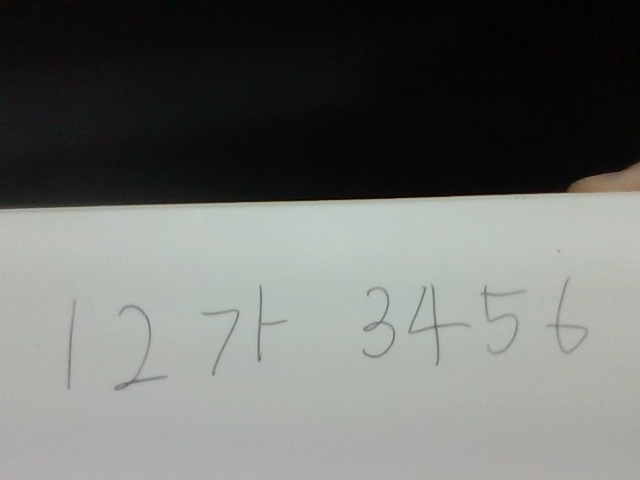 12가 3456